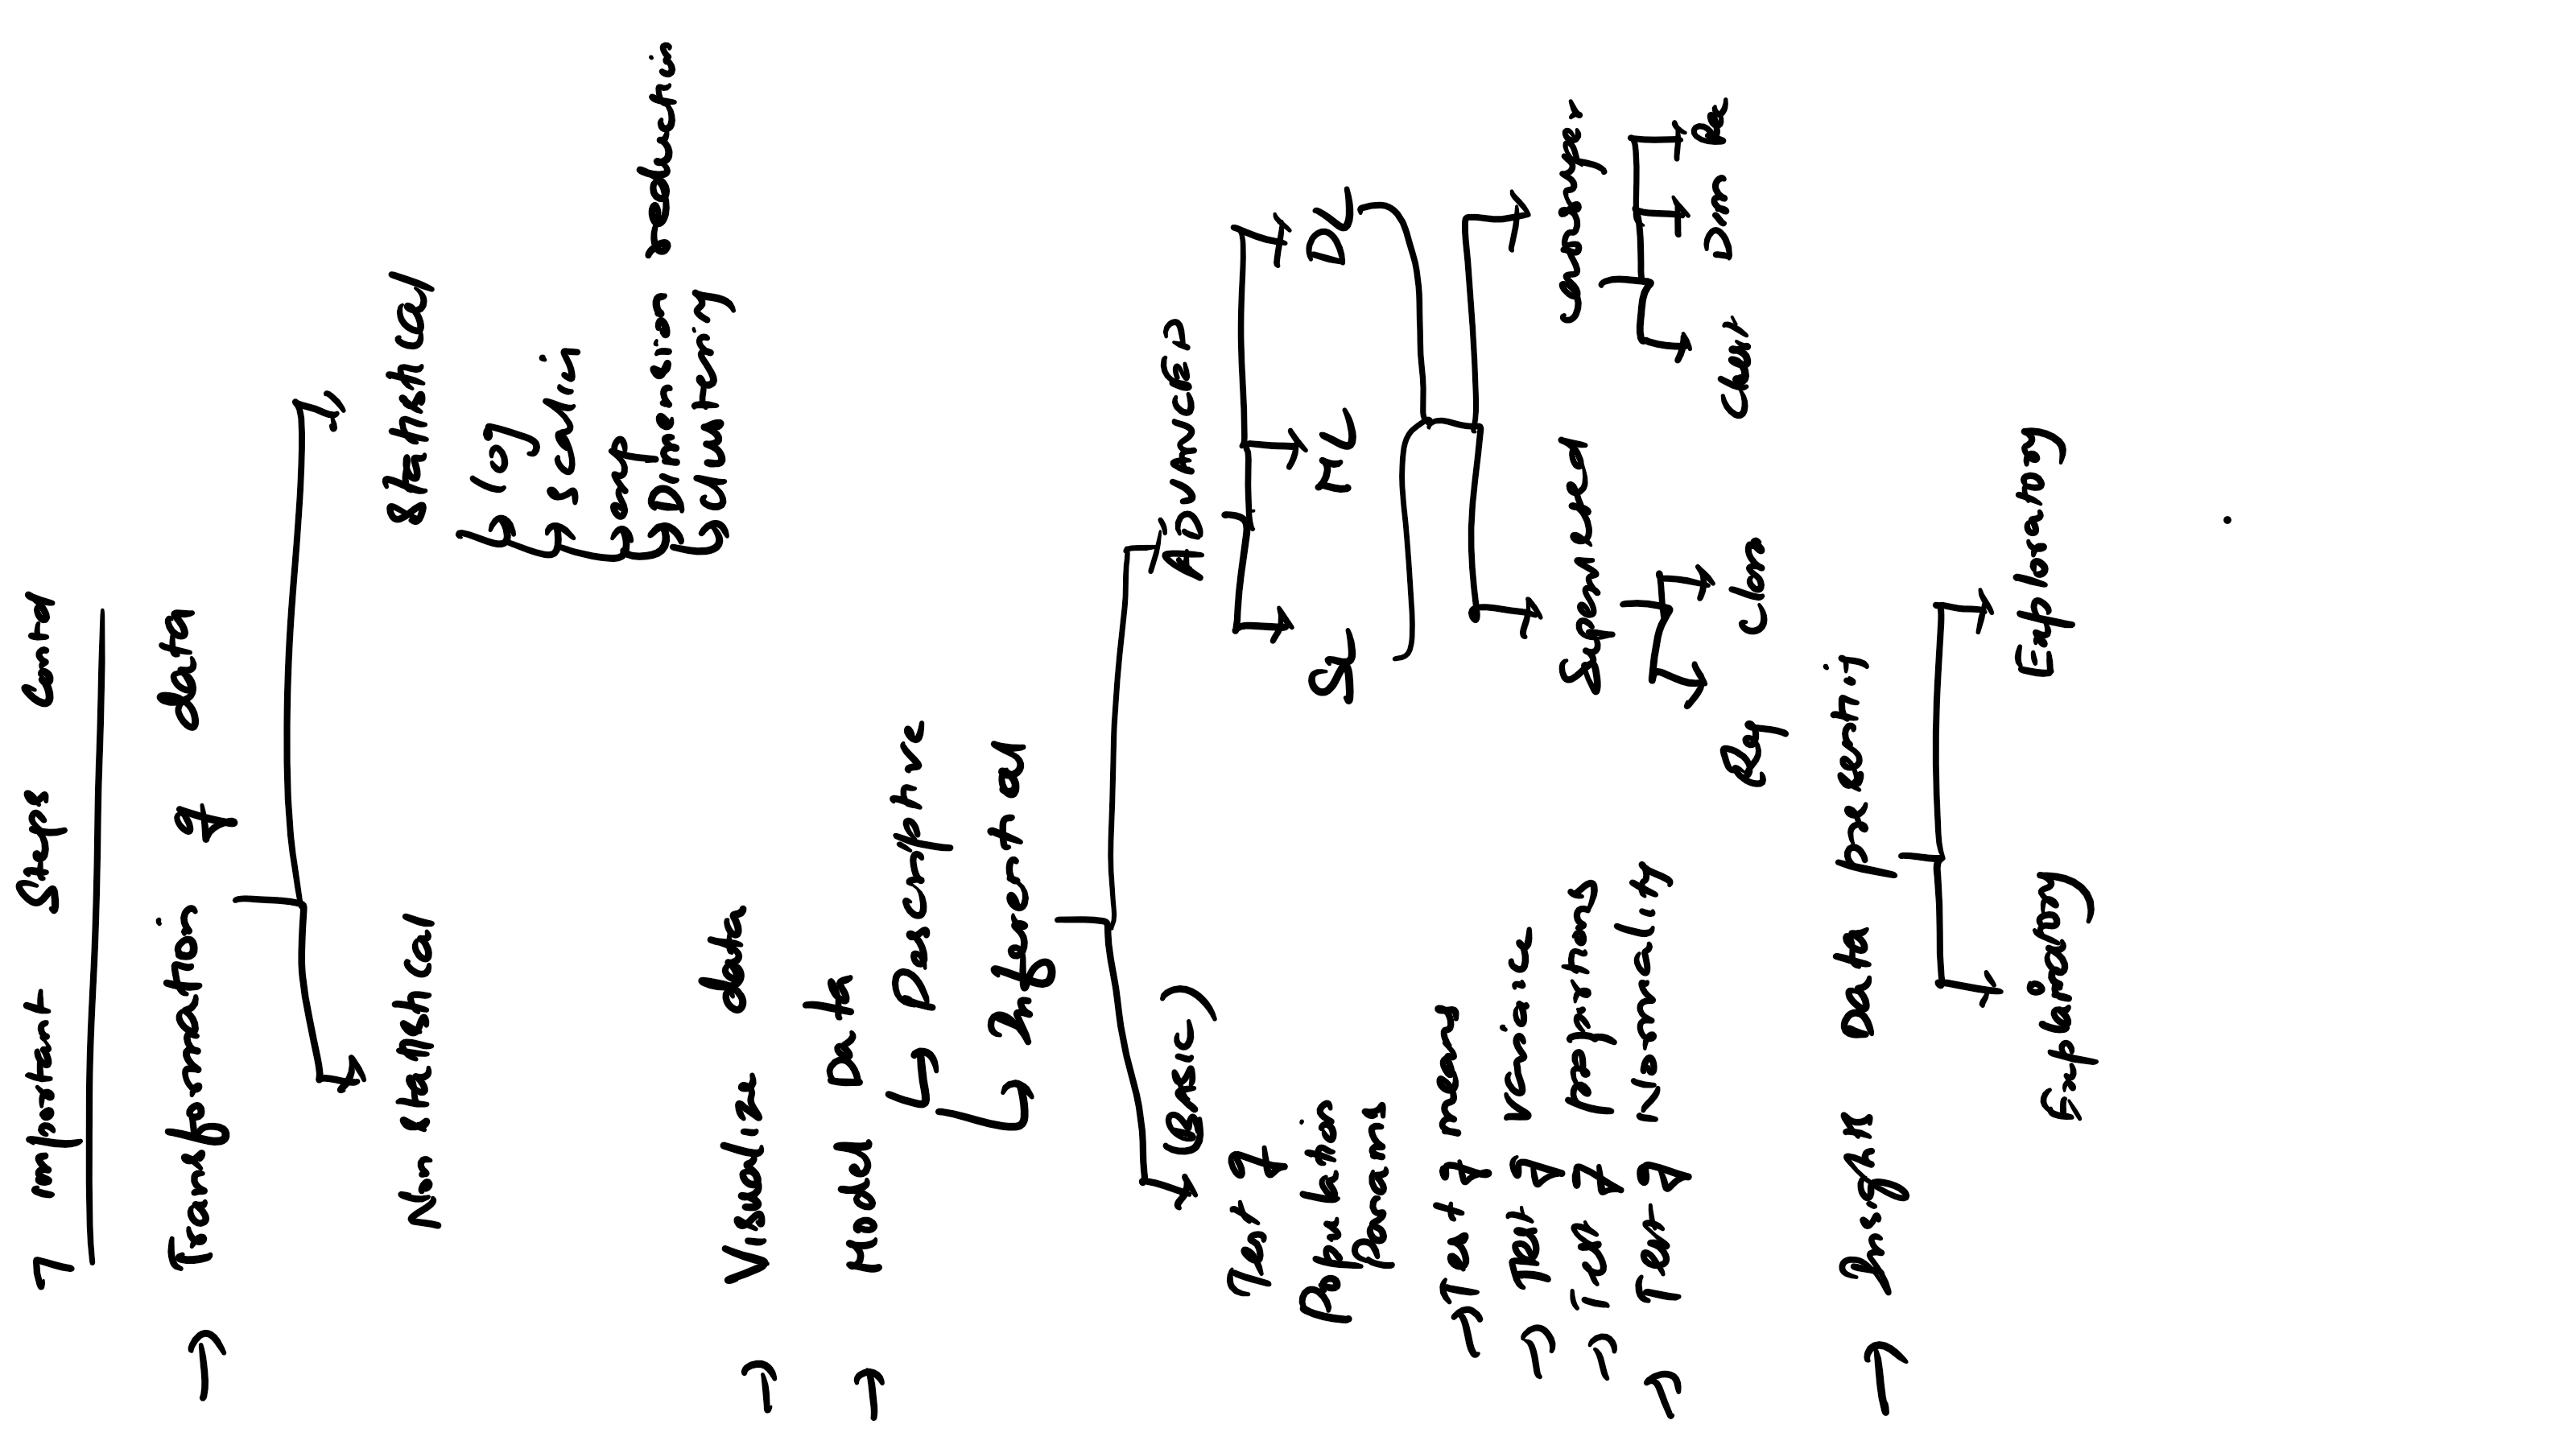 7 important steps contd
→ Transformation of data
Non statistical
Statistical
↳ log
↳ scalin
↳ exp
↳ Dimension reduction
↳ clustering
→ Visualize data
→ Model Data
↳ Descriptive
↳ Inferential
(BASIC)
ADVANCED
Test of
Population
Params
SL ML DL
→ Test of means
→ Test of variance
→ Test of proportions
→ Test of Normality
Supervised
Reg Class
Dim Re
→ Insight Data presentig
Explanatory Exploratory